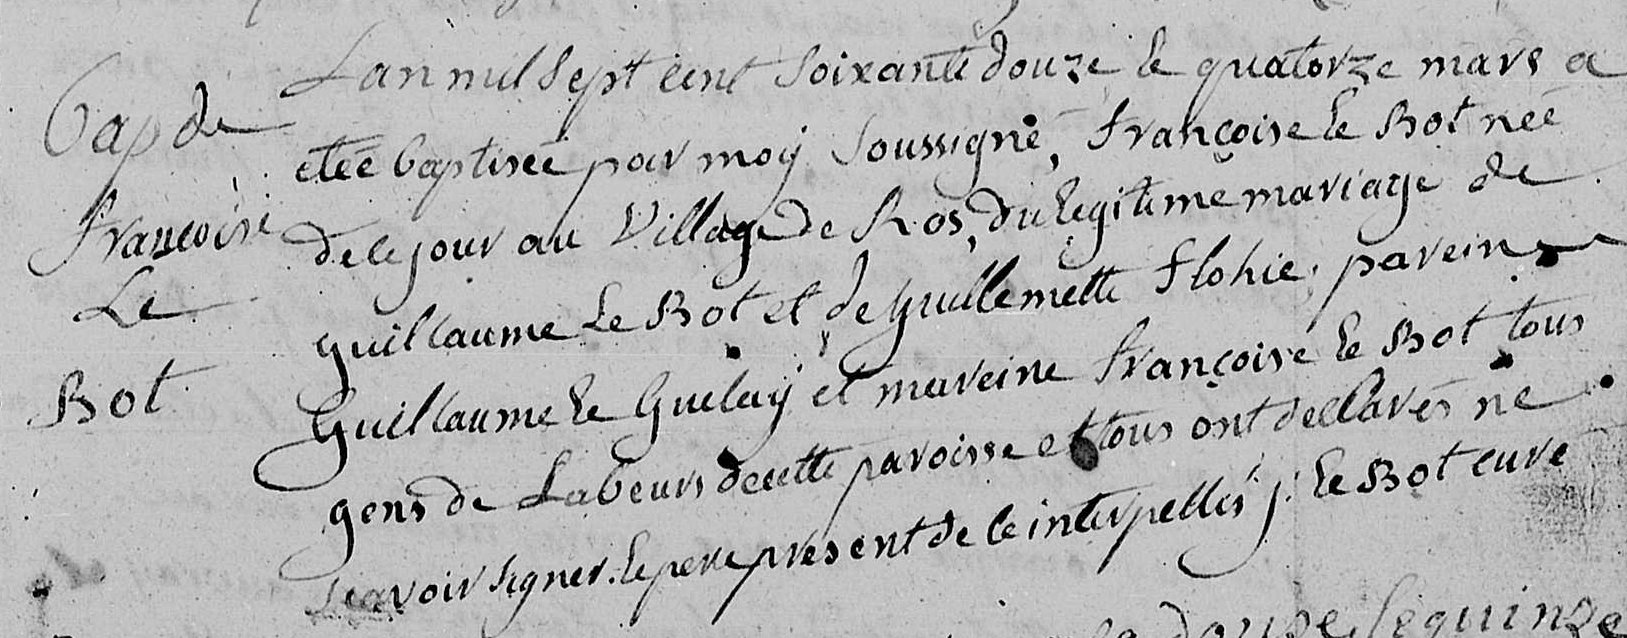 Bap de
françoise
Le
Bot
Lan mil sept cent soixante douze le quatorze mars a
eteé baptiseé par moy soussigné, françoise le Bot neé
de ce jour au village de Ros, du legitime mariage de
guillaume Le Bot et de guillemette flohic. parein
Guillaume le Guelay et mareine françoise le Bot tous
gens de Labeurs de cette paroisse et tous ont declarés ne
scavoir signer. le pere present de ce interpellés j. le Bot curé
douze le quinze